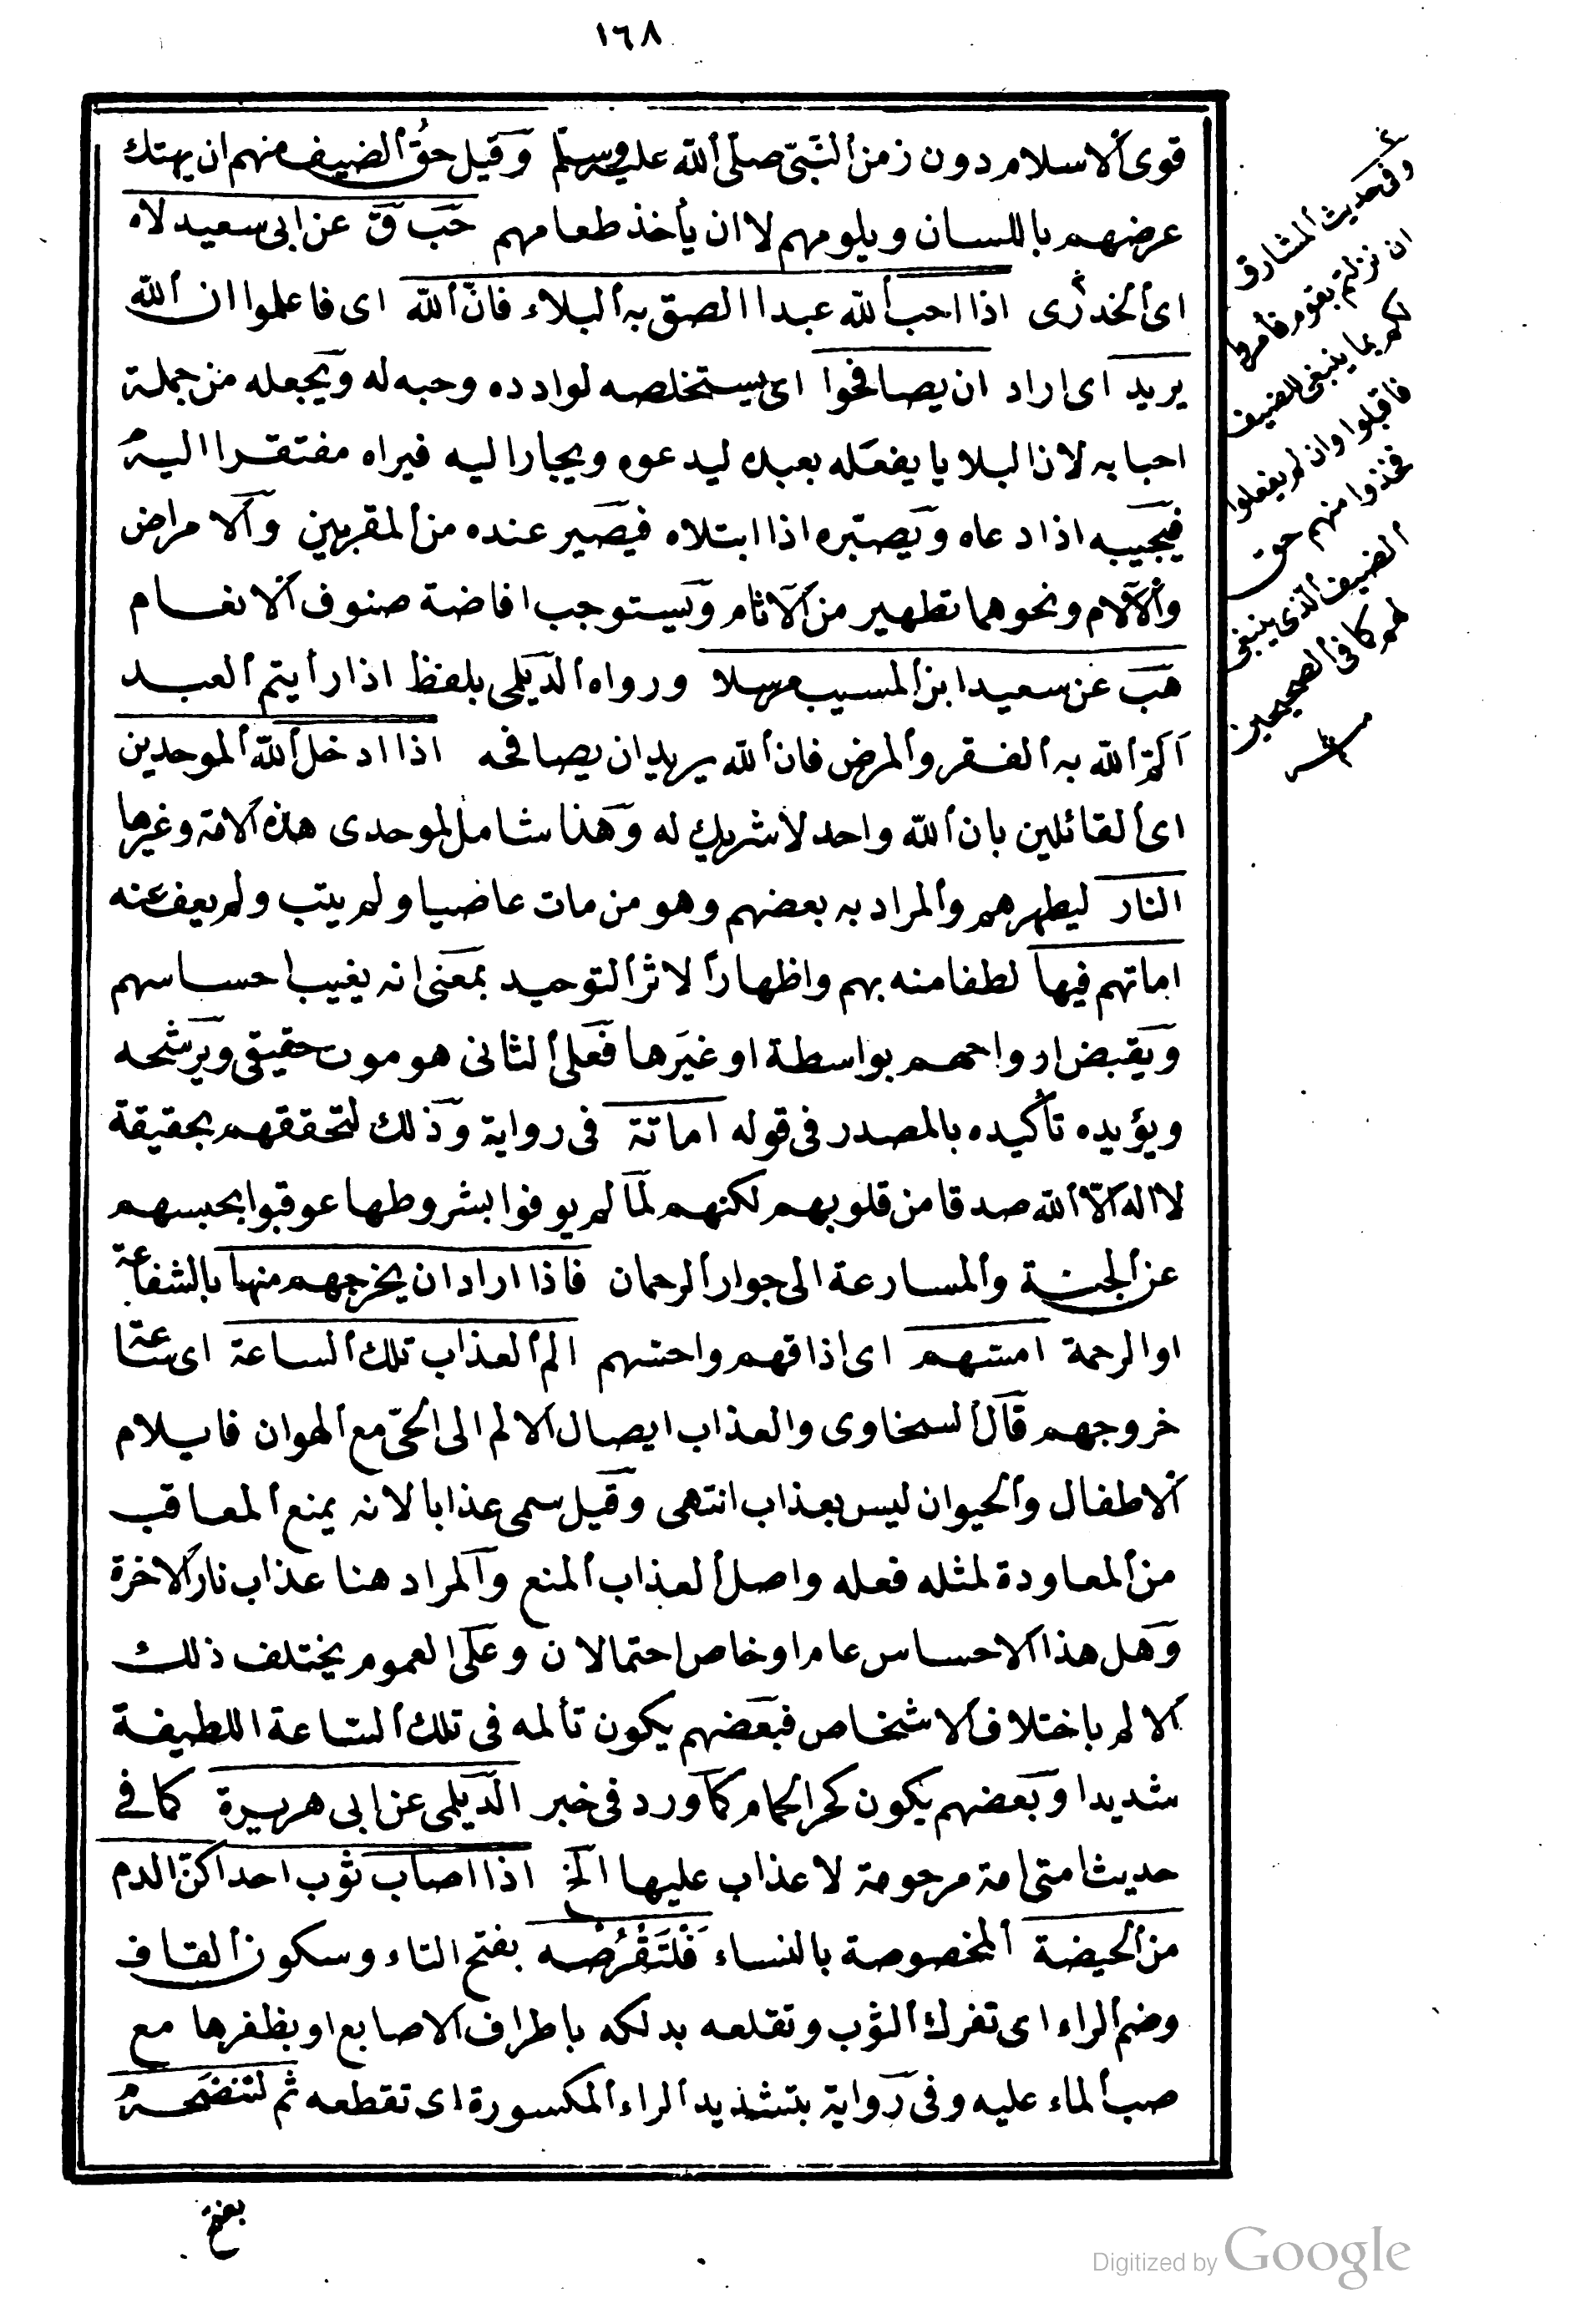 ١٦٨
قوى الاسلام دون زمن النبى صلى الله عليه وسلم وقيل حق الضيف منهم ان يهتك
عرضهم باللسان ويلومهم لا ان يأخذ طعامهم حب ق عن ابى سعيد لاه
اى الخدرى اذا احب الله عبدا الصق به البلاء فان الله اى فاعلموا ان الله
يريد اى اراد ان يصافحوا اى يستخلصه لوادده وحبه له ويجعله من جملة
احبابه لان البلايا يفعله بعبده ليدعوه ويجار اليه فيراه مفتقرا اليه
فيجيبه اذا دعاه ويصبره اذا ابتلاه فيصير عنده من المقربين والامراض
والآلام ونحوهما تطهير من الآثام ويستوجب افاضة صنوف الانعام
هب عن سعيد ابن المسيب مرسلا ورواه الديلى بلفظ اذا رأيتم العبد
ألم الله به الفقر والمرض فان الله يريد ان يصافحه اذا ادخل الله الموحدين
اى القائلين بان الله واحد لا شريك له وهذا شامل لموحدى هذه الامة وغيرها
النار ليطهرهم والمراد به بعضهم وهو من مات عاضيا ولم يتب ولم يعف عنه
اماتهم فيها لطفا منه بهم واظهارا لاثر التوحيد بمعنى انه يغيب احساسهم
ويقبض ارواحهم بواسطة او غيرها فعلى الثانى هو موت حقيقى ويرشحه
ويؤيده تأكيده بالمصدر فى قوله اماتة فى رواية وذلك لتحققهم بحقيقة
لا اله الا الله صدقا من قلوبهم لكنهم لما لم يوفوا بشروطها عوقبوا بحبسهم
عن الجنة والمسارعة الى جوار الرحمان فاذا اراد ان يخرجهم منها بالشفاعة
او الرحمة امسهم اى اذاقهم واحسهم الم العذاب تلك الساعة اى ساعة
خروجهم قال السخاوى والعذاب ايصال الالم الى الحى مع الهوان فايلام
الاطفال والحيوان ليس بعذاب انتهى وقيل سمى عذابا لانه يمنع المعاقب
من المعاودة لمثله فعله واصل العذاب المنع والمراد هنا عذاب نار الاخرة
وهل هذا الاحساس عام او خاص احتمالان وعلى العموم يختلف ذلك
الالم باختلاف الاشخاص فبعضهم يكون تألمه فى تلك الساعة اللطيفة
شديدا وبعضهم يكون كحر الحمام كما ورد فى خبر الديلى عن ابى هريرة كما فى
حديث امتى امة مرحومة لا عذاب عليها الخ اذا اصاب ثوب احداكن الدم
من الحيضة المخصوصة بالنساء فلتقرصه بفتح التاء وسكون القاف
وضم الراء اى تفرك الثوب وتقلعه بدلكه باطراف الاصابع او بظفرها مع
صب الماء عليه وفى رواية بتشديد الراء المكسورة اى تقطعه ثم لتنضحه
بفتح
وفى حديث المشارق
ان نزلتم بقوم فأمروا
لكم بما ينبغى للضيف
فاقبلوا وان لم يفعلوا
فخذوا منهم حق
الضيف الذى ينبغى
لهم كما فى الصحيحين
Digitized by Google